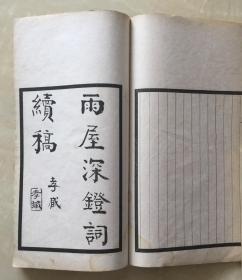 雨屋深鐙詞
續稿
孝臧